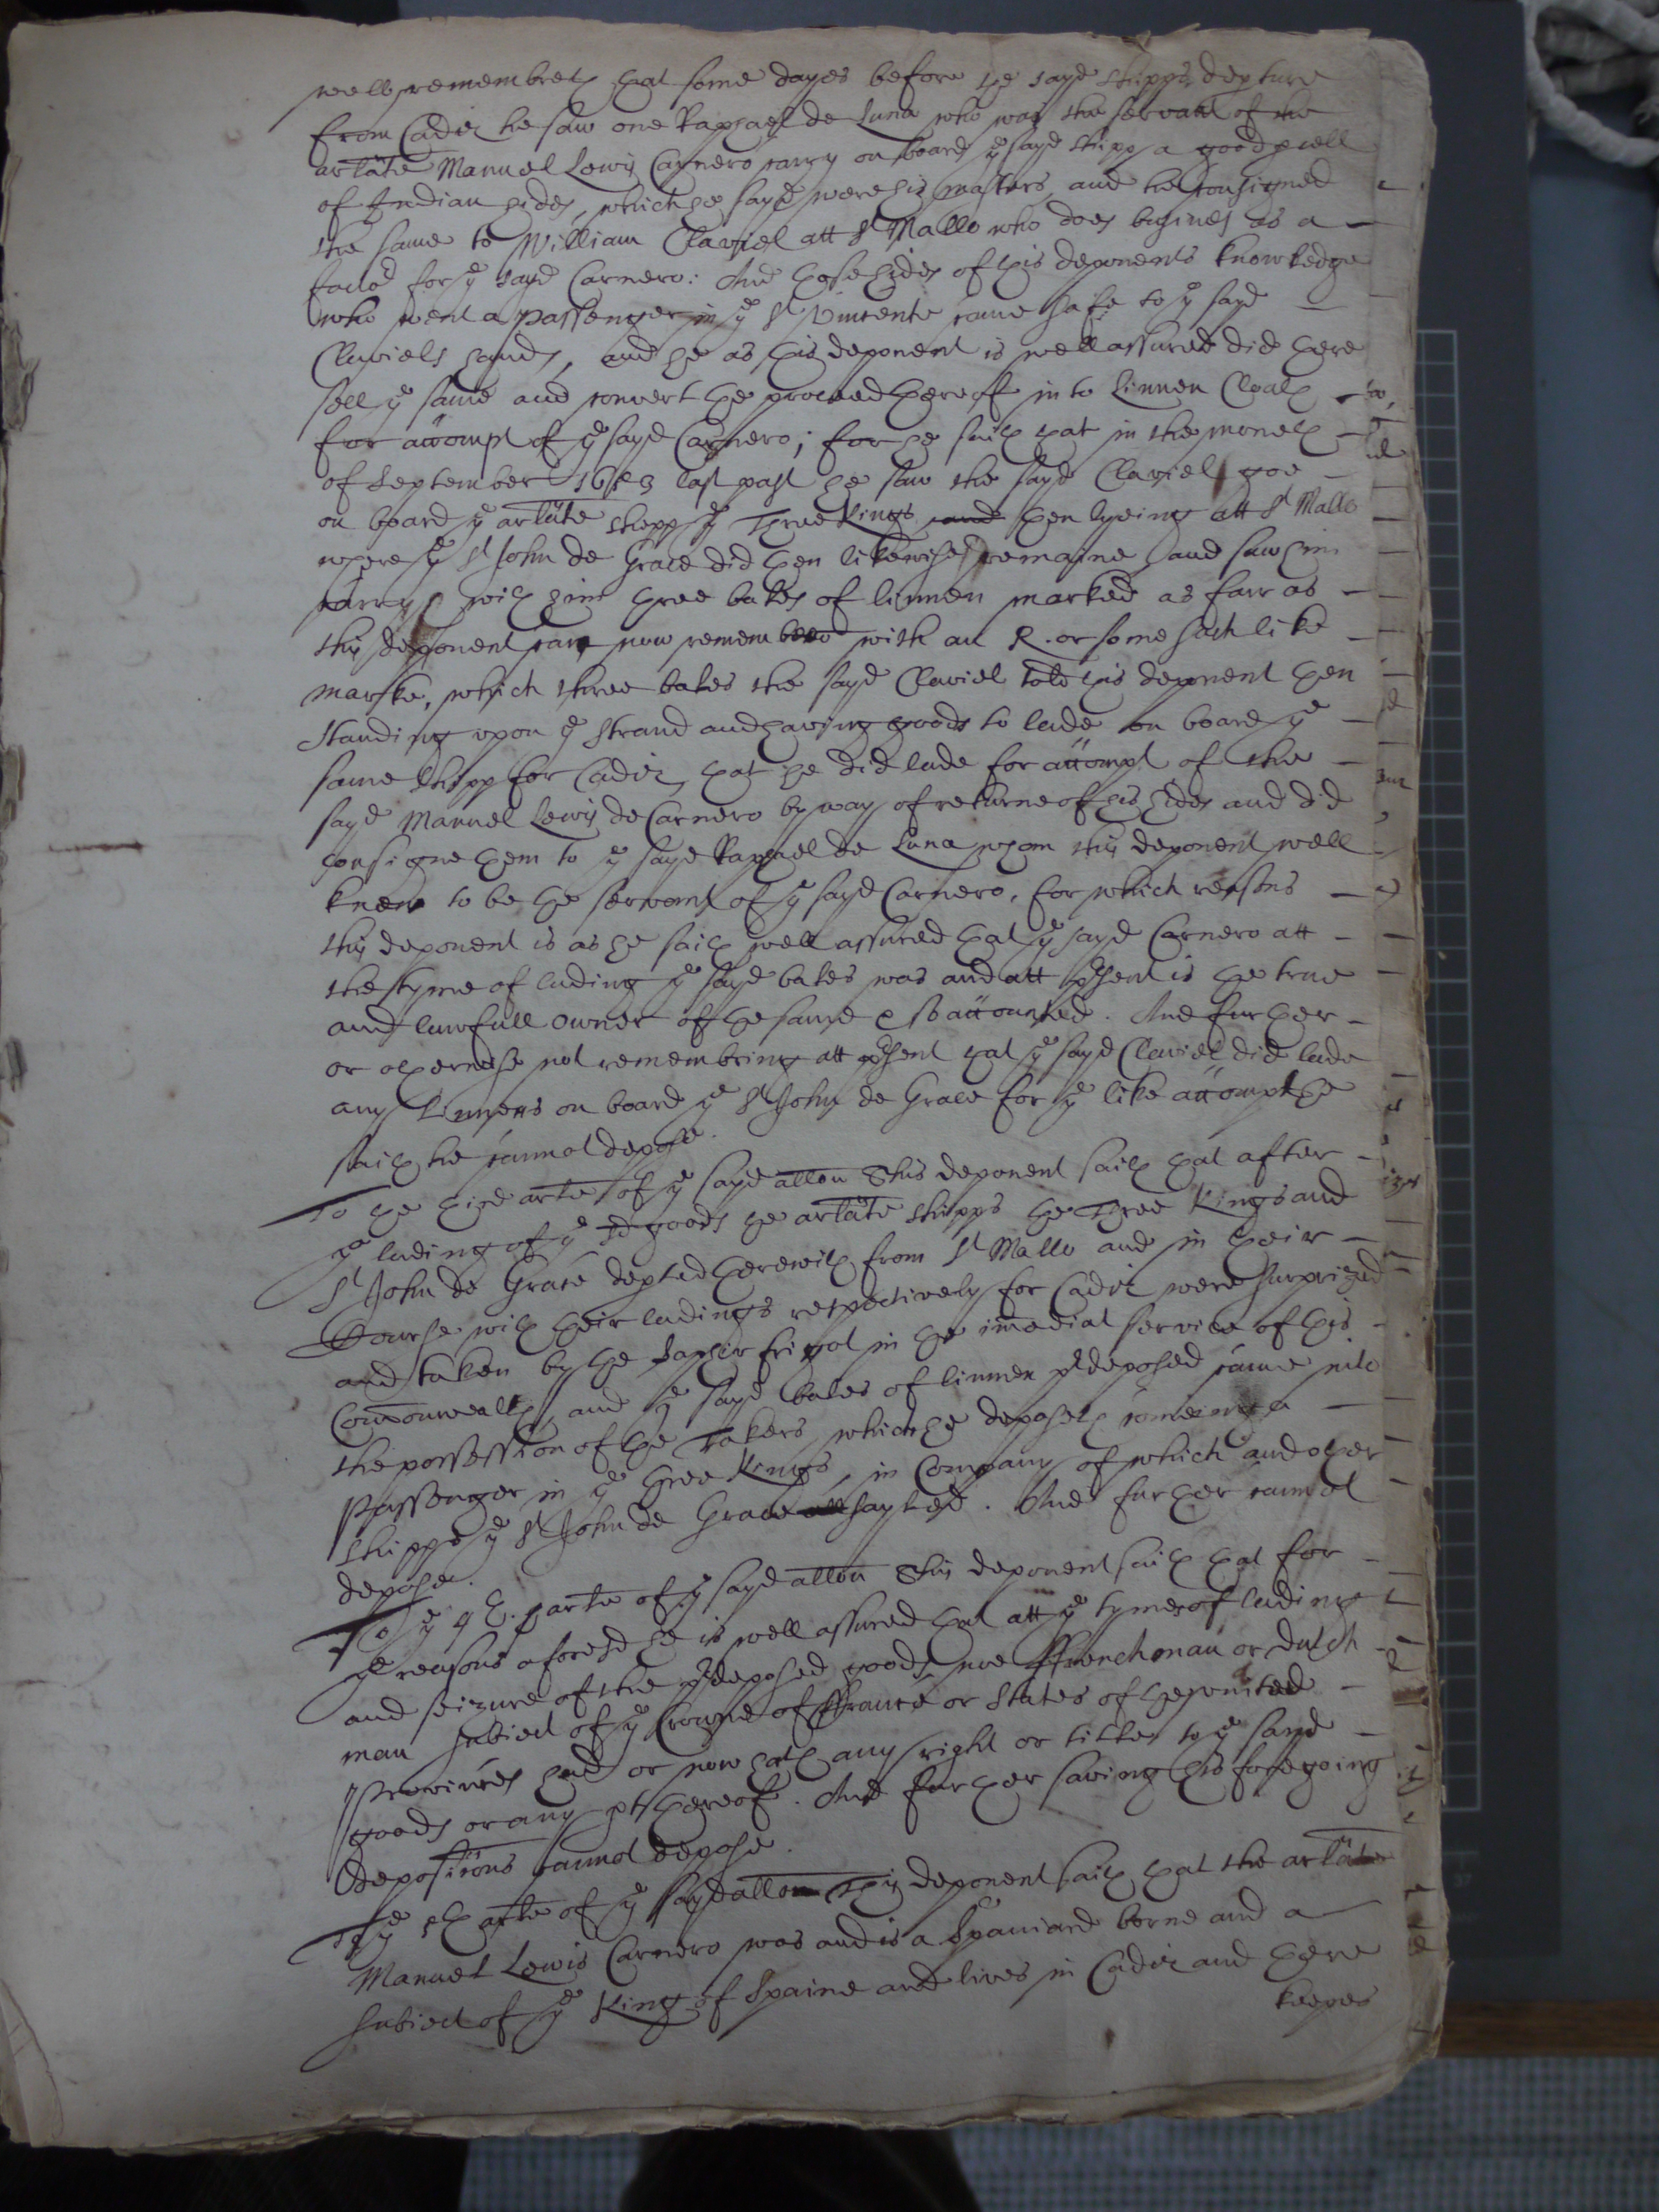 well remembreth that some dayes before the sayd shipps depture
from Cadiz he saw one Raphael de Luna who was the servant of the
arlate Manuel Lewis Carnero carry on board ye sayd shipp a good pcell
of Indian hides, which he sayd were his masters and he consigned
the same to William Claviel att St Mallo who does busines as a
factor for ye sayd Carnero: And those hides of this deponents knowledge
who went a passenger in ye St Vincente came safe to ye sayd
Claviels hands, and he as this deponent is well assured did there
sell ye same and convert the proceed thereof in to Linnen Cloath
for accompt of ye sayd Carnero; for he saith that in the moneth
of September 1653 last past he saw the sayd Claviel goe
on board ye arlate shipp ye Three Kings and then lyeing att St Mallo
where ye St John de Grace did then likewise remaine and saw him
carry with him three bales of linnen marked as farr as
this deponent can now remember with an R. or some such like
marke, which three bales the sayd Claviel told this deponent then
standing upon ye strand and having goods to lade on board ye
same shipp for Cadiz, that he did lade for accompt of the
sayd Manuel Lewis de Carnero by way of returne of his hides and did
consigne them to ye sayd Raphael de Luna whom this deponent well
knew to be the servant of ye sayd Carnero, for which reasons
this deponent is as he saith well assured that ye sayd Carnero att
the tyme of lading ye sayd bales was and att psent is the true
and lawfull owner of the same & so accounted. And further
or otherwise not remembring att psent that ye sayd Claviel did lade
any Linnens on board ye St John de Grace for ye like accompt he
saith he cannot depose.
To the third arle of ye sayd allon This deponent saith that after
ye lading of ye sd goods the arlate shipps the Three Kings and
St John de Grace depted therewith from St Mallo and in their
Course with their ladings respectively for Cadiz were surprized
and taken by the Saphir frigot in the imediat service of this
Comonwealth, and ye sayd bales of linnen pdeposed came into
the possession of the Takers, which he deposeth comeing a
Passenger in ye three Kings, in Company of which and other
shipps ye St John de Grace all sayled. And further cannot
depose.
To ye 4th. arle of ye sayd allon This deponent saith that for
ye reasons aforesd he is well assured that att ye tymes of lading
and seizure of the pdeposed goods, noe ffrenchman or Dutch
man subiect of ye Crowne of ffrance or States of the united
Provinces had or now hath any right or title to ye sayd
goods or any pt thereof. And further saving his foregoing
depositions cannot depose.
To ye 5th arle of ye sayd allon This deponent saith that the arlate
Manuel Lewis Carnero was and is a Spaniard borne and a
subiect of ye King of Spaine and lives in Cadiz and there
keepes